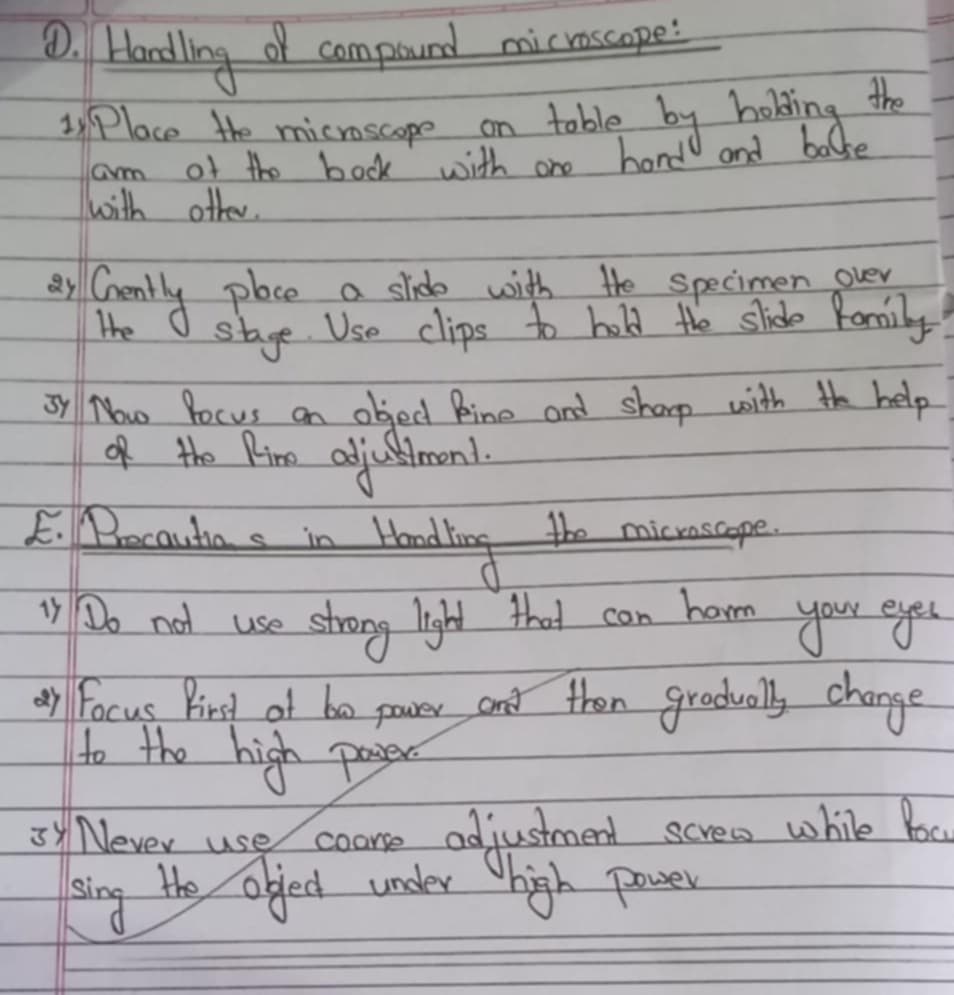 D. Handling of compound microscope:
1) Place the microscope on table by holding the
arm at the back with one hand and
with other.
2) Gently place a slide with the specimen over
the stage. Use clips to hold the slide
3) Now focus an object fine and sharp with the help
of the fine adjustment.
E. Precautions in Handling the microscope.
1) Do not use strong light that can harm your eyes
2) Focus first at low power and then gradually change
to the high power.
3) Never use coarse adjustment screw while focu
sing the object under high power